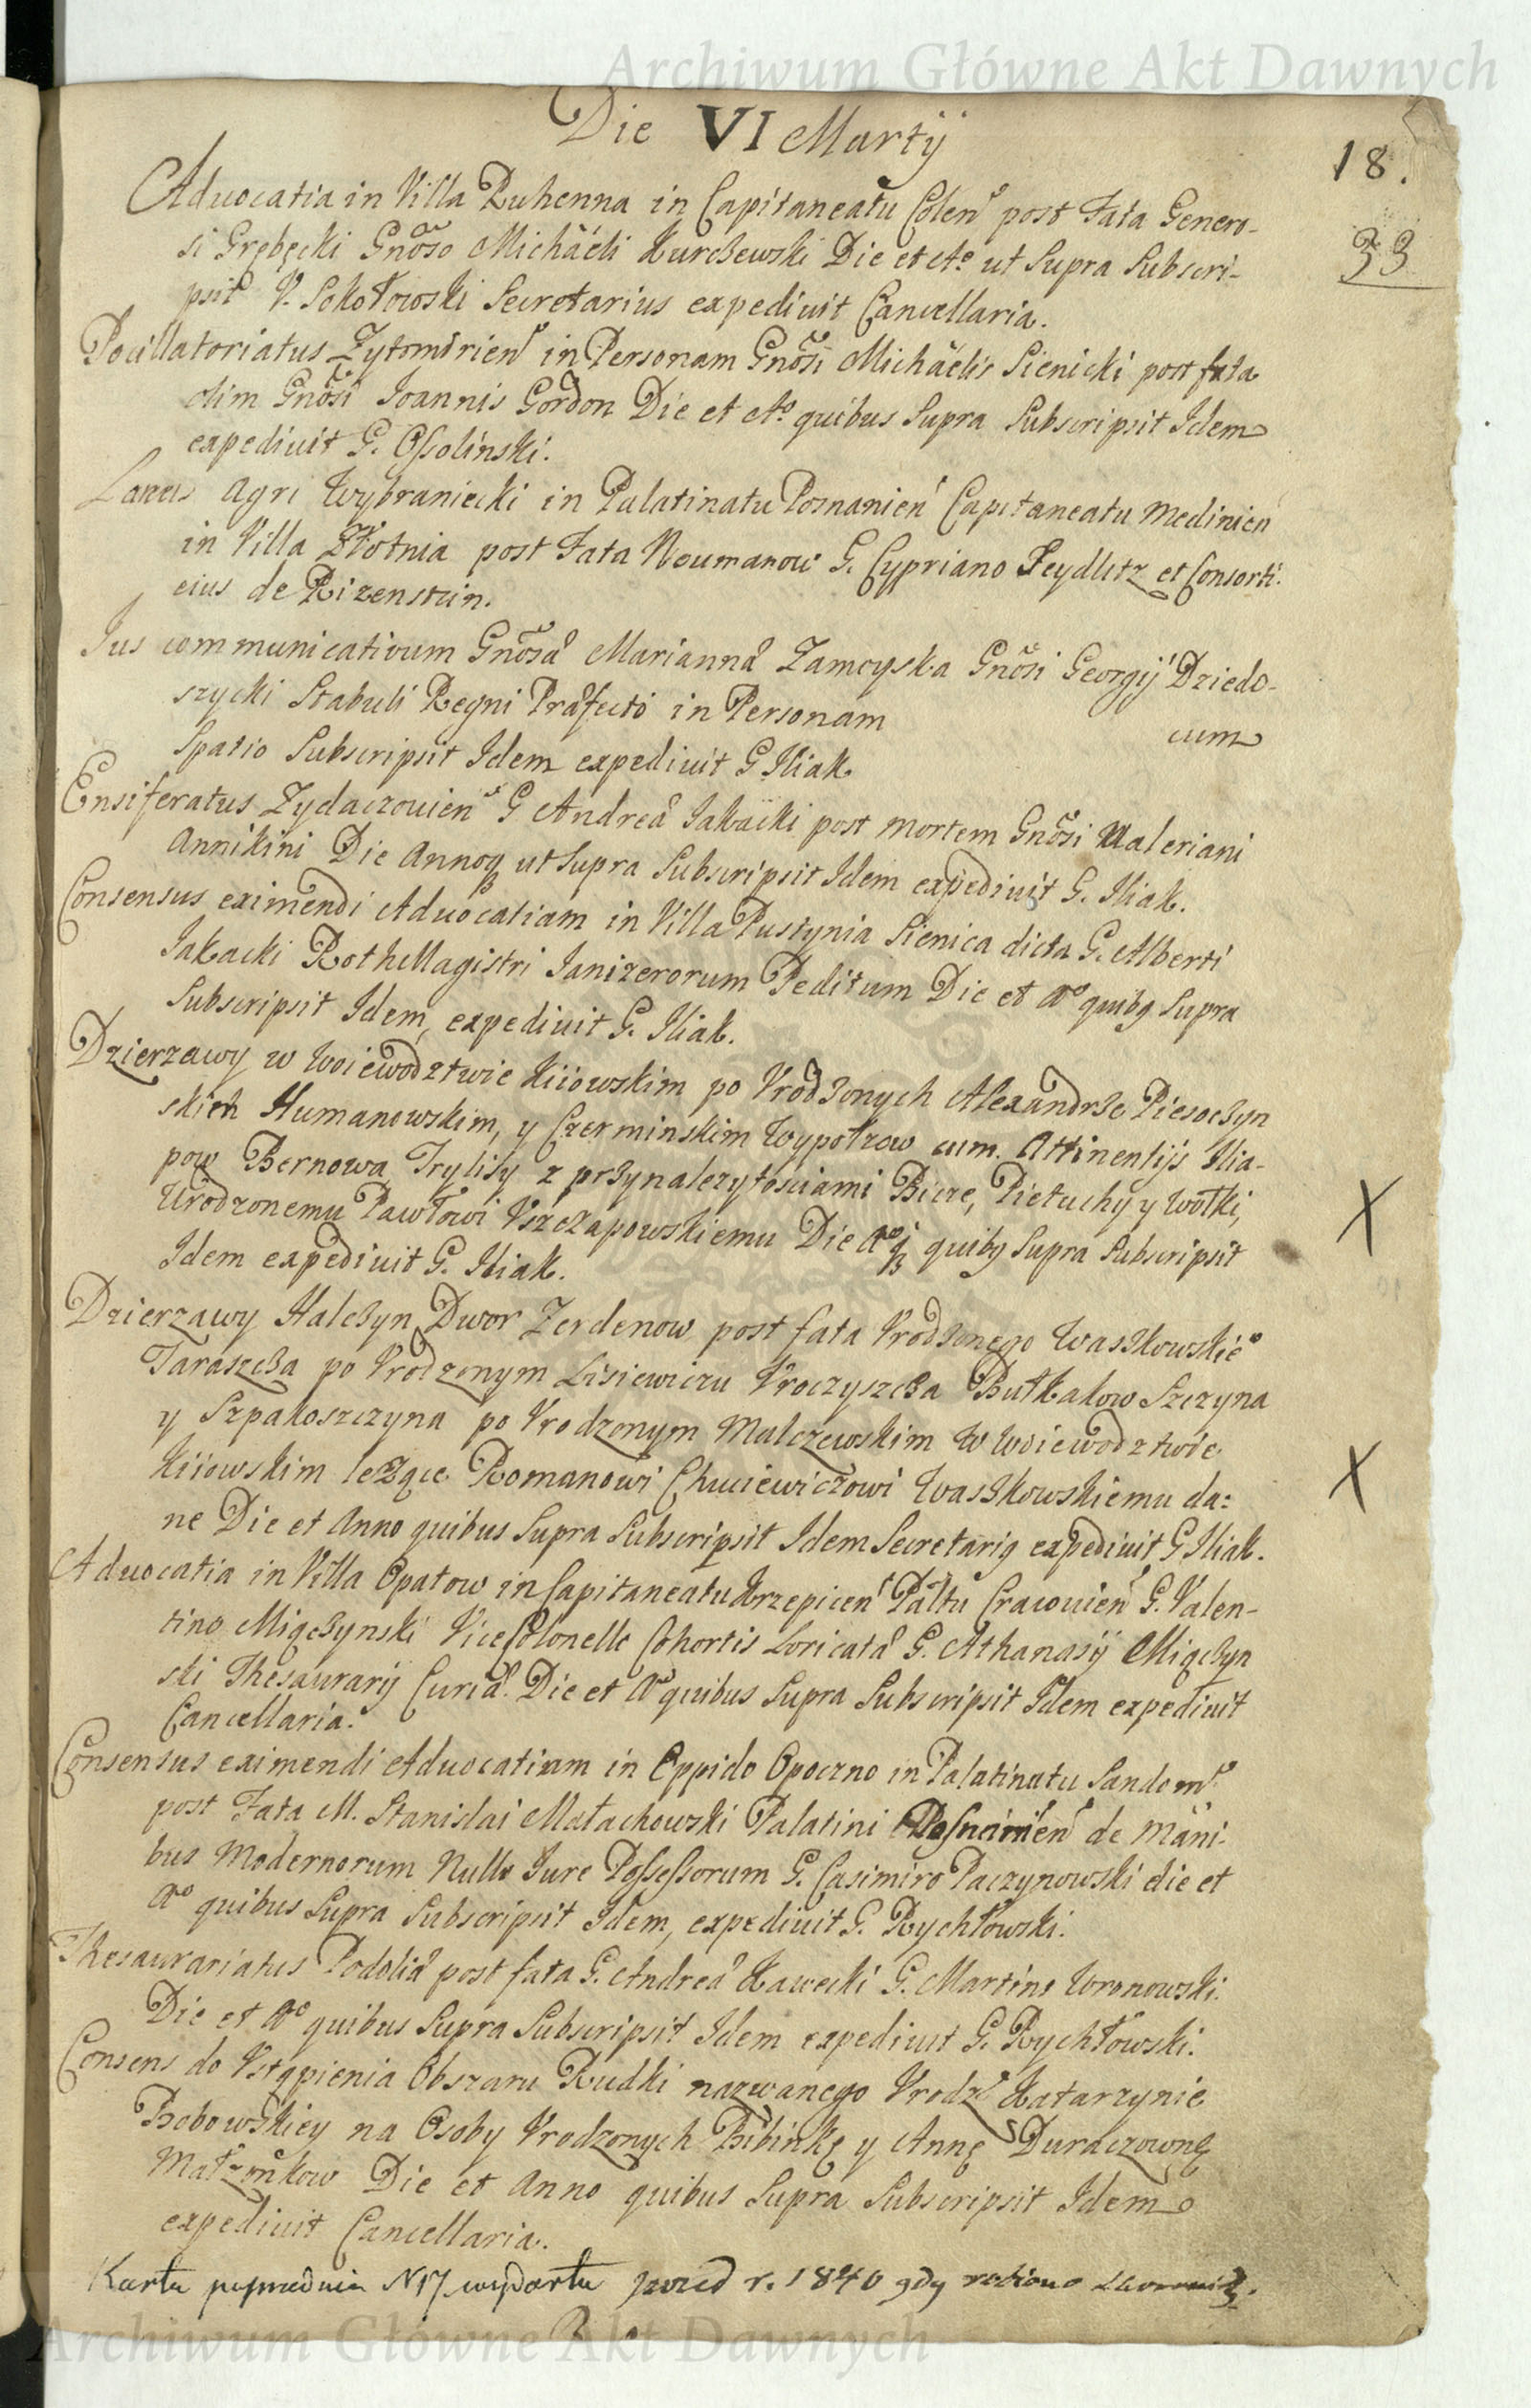 Archiwum Główne Akt Dawnych
Die VI Martij
18.
33
Advocatia in Villa Ruhenna in Capitaneatu Colen post Fata Genero-
si Grębęcki Gnoso Michaeli Kurczewski Die et Ao ut Supra Subscri-
psit V. Sokołowski Secretarius expedivit Cancellaria.
Pocillatoriatus Zytomirien in Personam Gnosi Michaelis Sienicki post fata
olim Gnosi Joannis Gordon Die et Ao quibus Supra Subscripsit Idem
expedivit G. Ossolinski.
Laneus Agri Wybraniecki in Palatinatu Posnanien Capitaneatu Medinien
in Villa Złotnia post Fata Neumanow G. Cypriano Seydlitz et Consorti
eius de Rizenstein.
Ius communicativum Gnosa Marianna Zamoyska Gnosi Georgij Dziedo-
szycki Stabuli Regni Præfecto in Personam cum
Spatio Subscripsit Idem expedivit G Iliak.
Ensiferatus Zydaczovien G Andrea Jakacki post mortem Gnosi Valeriani
Annikini Die Annoq ut Supra Subscripsit Idem expedivit G. Iliak.
Consensus eximendi Advocatiam in Villa Pustynia Sienica dicta G. Alberti
Jakacki RothMagistri Janizerorum Peditum Die et Ao quibq Supra
Subscripsit Idem, expedivit G. Iliak.
Dzierzawy w Woiewodztwie Kiiowskim po Vrodzonych Alexandrze Piesoczyn
skich Humanowskim, y Czerminskim Wypołzow cum Attinentijs Ilia-
pow Bernowa Trylisy z przynalezytosciami Bicze, Pietuchy y Wołki,
Urodzonemu Pawłowi Vszczapowskiemu Die Aoq quibq Supra Subscripsit
Idem expedivit G. Iliak.
Dzierzawy Halczyn Dwor Zerdenow post fata Vrodzonego Waszkowskie
Taraszcza po Vrodzonym Lisiewiczu Vroczyszcza Butkałow Szczyna
y Szpakoszczyna po Vrodzonym Malczewskim w Woiewodztwie
Kiiowskim lezące Romanowi Chuciewiczowi Waszkowskiemu da:
ne Die et Anno quibus Supra Subscripsit Idem Secretariq expedivit G Iliak.
Advocatia in Villa Opatow in Capitaneatu Krzepicen Paltu Cracovien G. Valen-
tino Miączynski ViceColonello Cohortis Loricata G. Athanasij Miączyn
ski Thesaurarij Curia. Die et Ao quibus Supra Subscripsit Idem expedivit
Cancellaria.
Consensus eximendi Advocatiam in Oppido Opoczno in Palatinatu Sandom
post Fata M. Stanislai Małachowski Palatini Posnanien de mani-
bus Modernorum Nullo Iure Possessorum G. Casimiro Paczynowski die et
Ao quibus Supra Subscripsit Idem, expedivit G. Rychłowski.
Thesaurariatus Podolia post fata G. Andrea Kawecki G. Martino Wronowski.
Die et Ao quibus Supra Subscripsit Idem expedivit G. Rychłowski.
Consens do Vstąpienia Obszaru Rudki nazwanego Vrodz Katarzynie
Bobowskiey na Osoby Vrodzonych Bibinkę y Annę Duraczownę
Małzonkow Die et Anno quibus Supra Subscripsit Idem
expedivit Cancellaria.
Karta poprzednia N 17 wydarta przed r. 1840 gdy robiono
Archiwum Główne Akt Dawnych